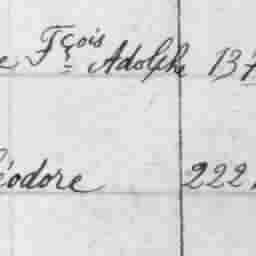 e Fçois Adolphe 137
éodore 222